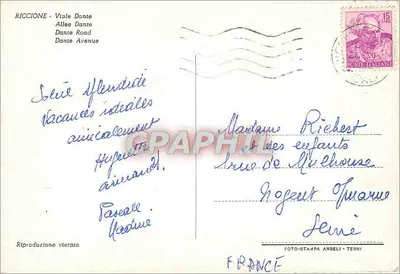 RICCIONE - Viale Dante
Allee Dante
Dance Road
Dante Avenue
15
LIRE
POSTE ITALIANE
Soleil splendide
Vacances idéales
amicalement
Huguette
Pascale
Nadine
CPAPHIL
Madame Richert
et des enfants
rue de Mulhouse
Nogent s/marne
Seine
FRANCE
Riproduzione vietata
FOTO-STAMPA ANGELI - TERNI